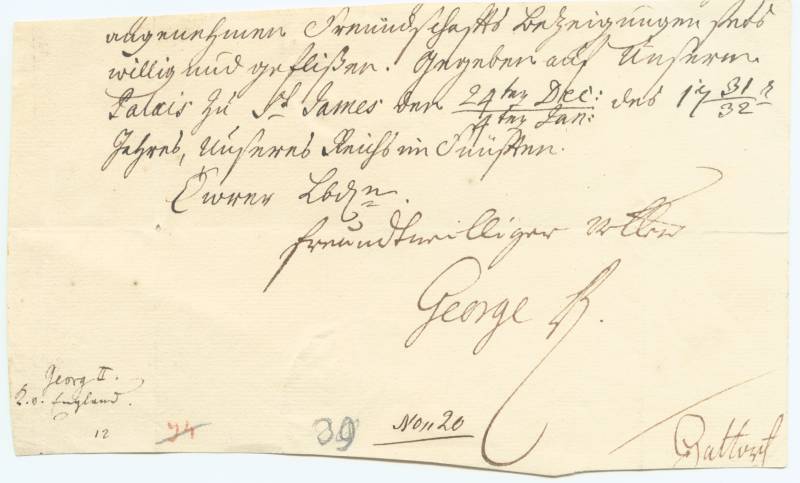 angenehmen Freündschaffts Bezeigungen stets
willig und geflißen. Gegeben auf Unserm
Palais zu St. James den 24ten Dec: / 4ten Jan: des 17 31 / 32
Jahres, Unseres Reichs im Fünfften.
Ewrer Lbdn.
freundtwilliger Vetter
George R.
Georg II.
K. v. England.
12
74
39
Non 20
Hattorf